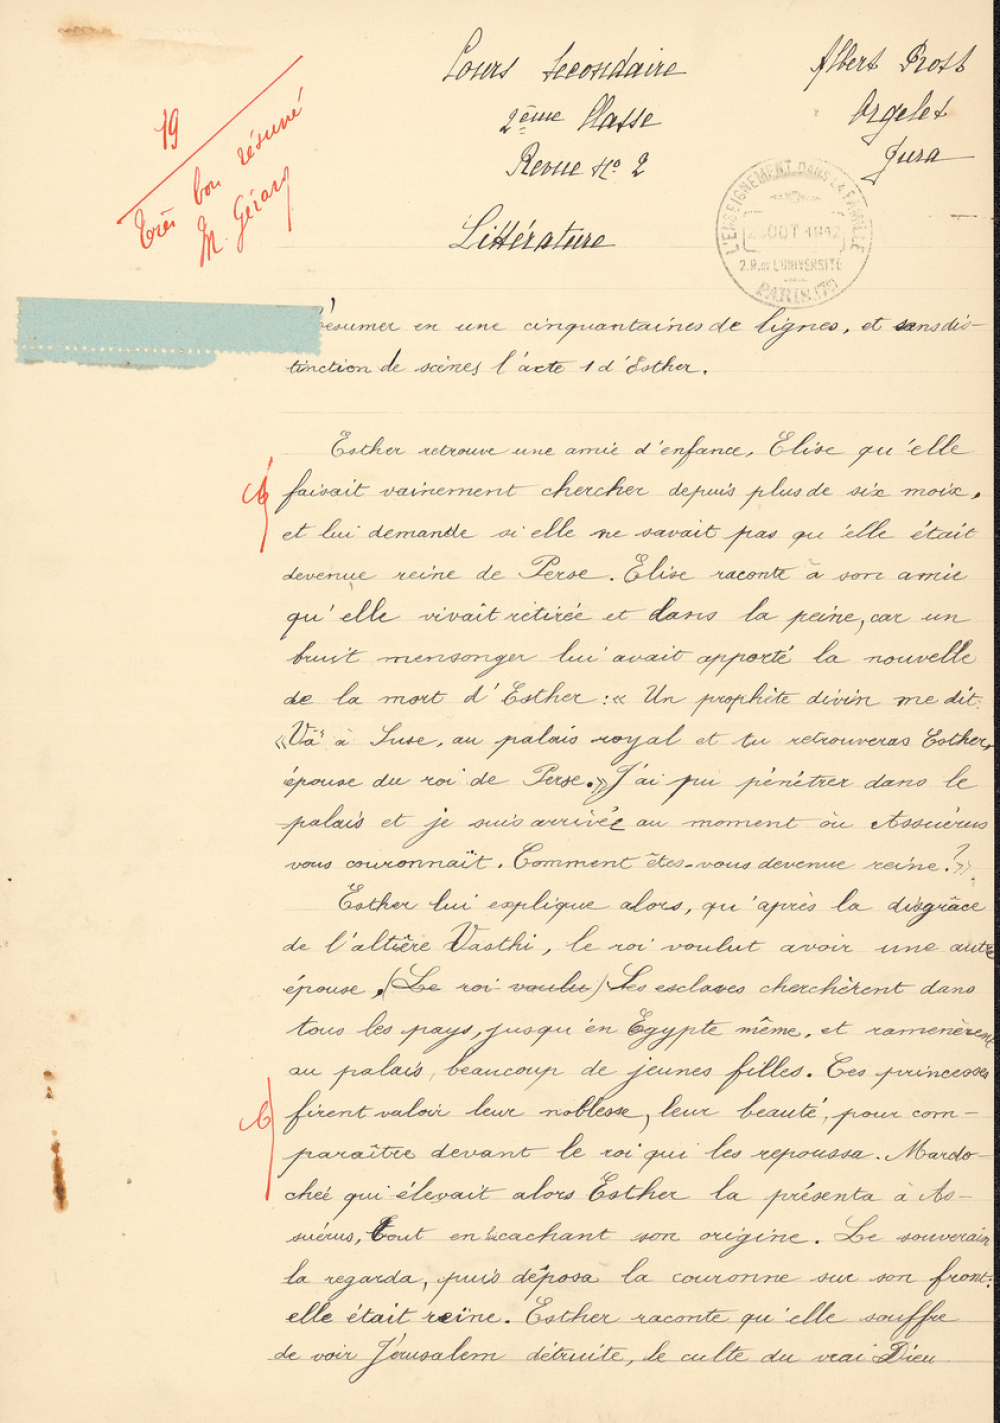 Cours Secondaire
2ème Classe
Revue No 2
Littérature
Albert Prost
Orgelet
Jura
19
très bon résumé
M. Gérard
L'ENSEIGNEMENT DANS LA FAMILLE
OCT 1942
2.R. de L'UNIVERSITÉ
PARIS (7e)
Résumer en une cinquantaines de lignes, et sans dis-
tinction de scènes l'acte 1 d'Esther.
Esther retrouve une amie d'enfance, Elise qu'elle
faisait vainement chercher depuis plus de six moix,
et lui demande si elle ne savait pas qu'elle était
devenue reine de Perse. Elise raconte à son amie
qu'elle vivait retirée et dans la peine, car un
bruit mensonger lui avait apporté la nouvelle
de la mort d'Esther : « Un prophète divin me dit
« Va" à Suse, au palais royal et tu retrouveras Esther,
épouse du roi de Perse.» J'ai pu pénétrer dans le
palais et je suis arrivée au moment où Assuérus
vous couronnait. Comment êtes-vous devenue reine ? ».
Esther lui explique alors, qu'après la disgrâce
de l'altière Vasthi, le roi voulut avoir une autre
épouse, (Le roi voulu) Les esclaves cherchèrent dans
tous les pays, jusqu'en Egypte même, et ramenèrent
au palais, beaucoup de jeunes filles. Ces princesses
firent valoir leur noblesse, leur beauté, pour com-
paraître devant le roi qui les repoussa. Mardo-
chée qui élevait alors Esther la présenta à As-
suérus, tout en cachant son origine. Le souverain
la regarda, puis déposa la couronne sur son front:
elle était reine. Esther raconte qu'elle souffre
de voir Jérusalem détruite, le culte du vrai Dieu